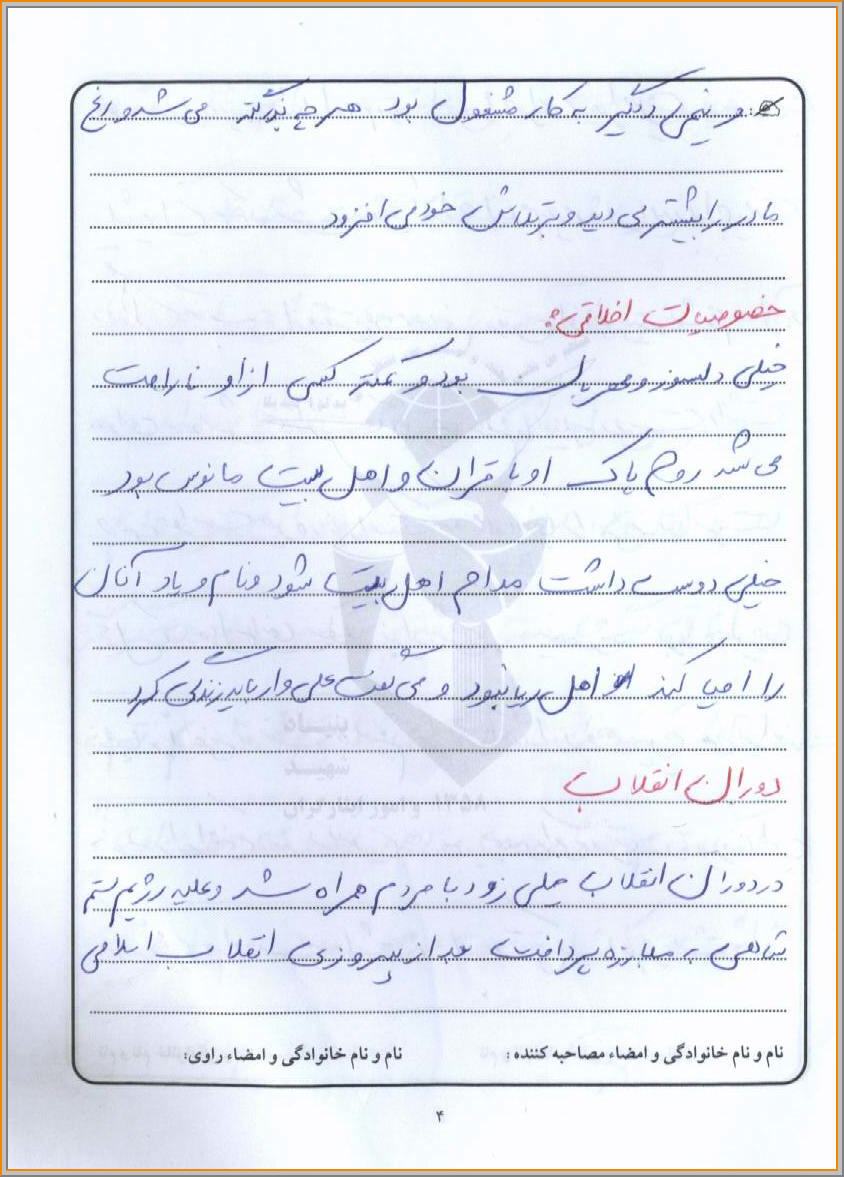 و نیمی دیگر به کار مشغول بود هر چه بزرگتر می شد و رنج
مادر را بیشتر می دید و بر تلاش خود می افزود
خصوصیات اخلاقی:
خیلی دلسوز و مهربان بود و کمتر کسی از او ناراحت
می شد روح پاک او با قران و اهل بیت مانوس بود
خیلی دوست داشت مداح اهل بیت شود و نام و یاد آنان
را احیا کند اهل ریا نبود و می گفت علی وار باید زندگی کرد
بنیاد
شهید
و امور ایثارگران ۱۳۵۸
دوران انقلاب
در دوران انقلاب خیلی زود با مردم همراه شد و علیه رژیم ستم
شاهی به مبارزه پرداخت بعد از پیروزی انقلاب اسلامی
نام و نام خانوادگی و امضاء مصاحبه کننده : نام و نام خانوادگی و امضاء راوی:
۴